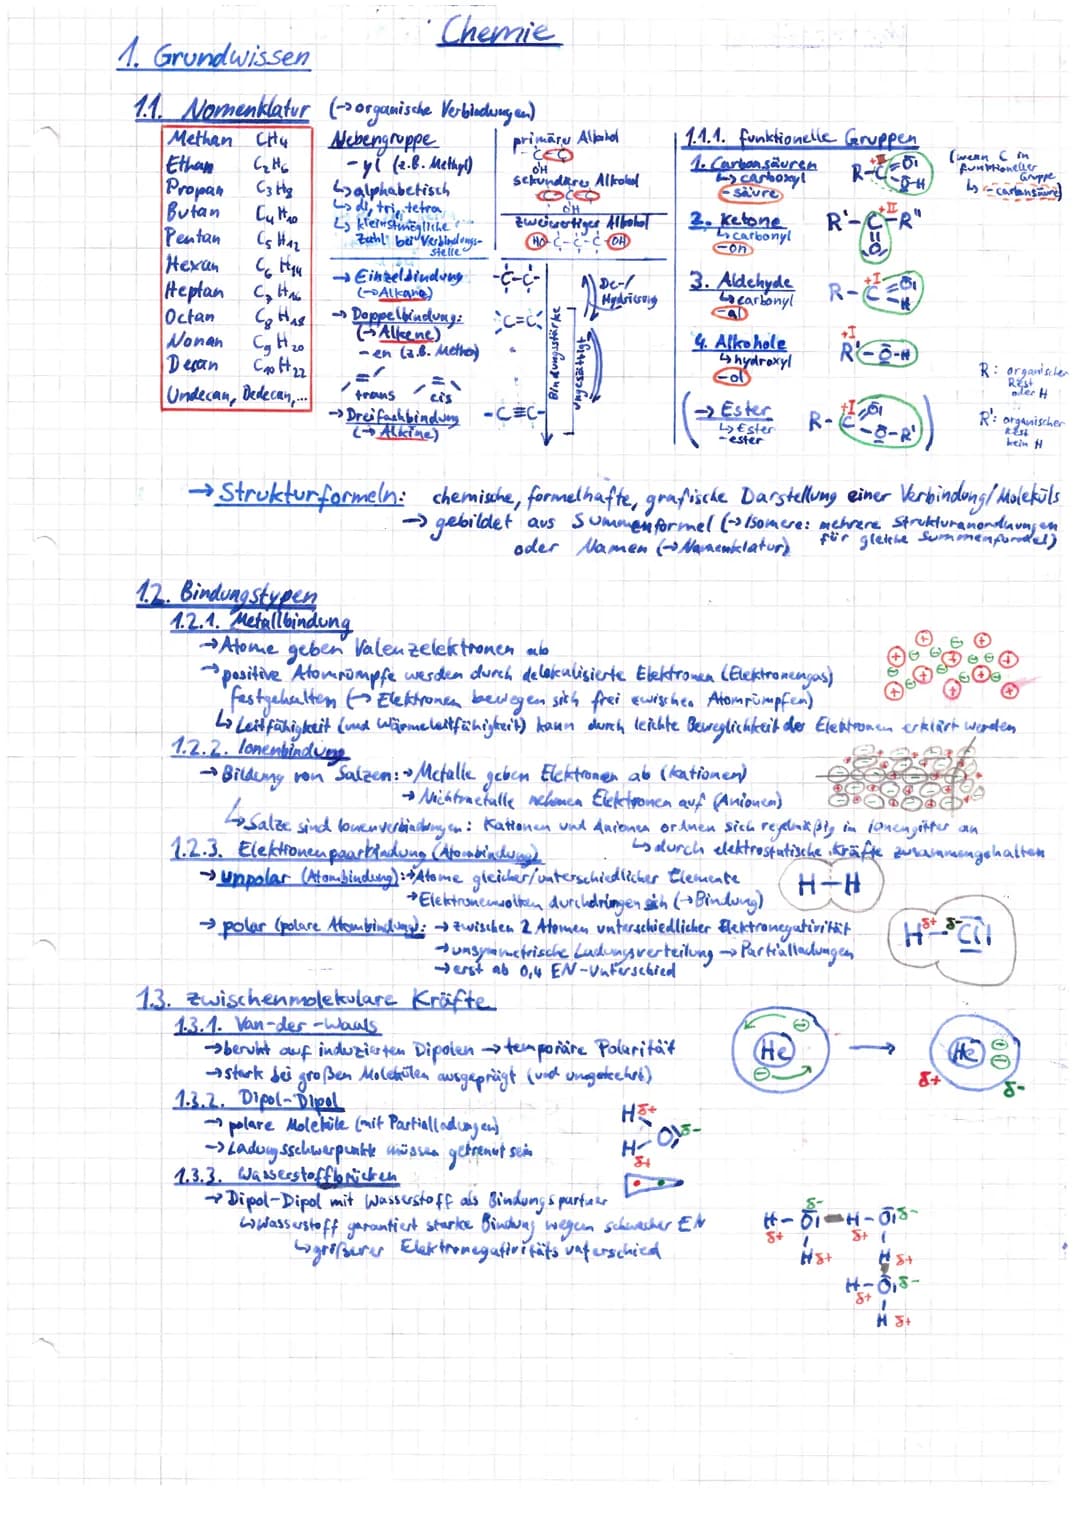 Chemie
1. Grundwissen
1.1. Nomenklatur (→ organische Verbindungen)
Methan CH4
Ethan C2H6
Propan C3H8
Butan C4H10
Pentan C5H12
Hexan C6H14
Heptan C7H16
Octan C8H18
Nonan C9H20
Decan C10H22
Undecan, Dodecan,...
Nebengruppe
-yl (z.B. Methyl)
↳ alphabetisch
↳ di, tri, tetra
↳ kleinstmögliche
Zahl bei Verbindungs-
stelle
→ Einzelbindung
(→ Alkane)
→ Doppelbindung:
(→ Alkene)
-en (z.B. Methen)
trans cis
→ Dreifachbindung
(→ Alkine)
primärer Alkohol
-C-C
OH
sekundärer Alkohol
C-C-C
OH
zweiwertiger Alkohol
HO-C-C-C-OH
-C-C-
C=C
-C≡C-
Bindungsstärke
ungesättigt
De-/
Hydrierung
1.1.1. funktionelle Gruppen
1. Carbonsäuren
↳ carboxyl
-säure
R-C O
O-H
+III
(wenn C in
funktioneller
Gruppe
↳ -carbonsäure)
2. Ketone
↳ carbonyl
-on
R'-C-R''
+II
O
3. Aldehyde
↳ carbonyl
-al
R-C O
H
+I
4. Alkohole
↳ hydroxyl
-ol
+I
R'-O-H
(→ Ester
↳ Ester
-ester
R-C O
O-R')
+I
R: organischer
Rest
oder H
R': organischer
Rest
kein H
→ Strukturformeln: chemische, formelhafte, grafische Darstellung einer Verbindung/Moleküls
→ gebildet aus Summenformel (→ Isomere: mehrere Strukturanordnungen
für gleiche Summenformel)
oder Namen (→ Nomenklatur)
1.2. Bindungstypen
1.2.1. Metallbindung
→ Atome geben Valenzelektronen ab
→ positive Atomrümpfe werden durch delokalisierte Elektronen (Elektronengas)
festgehalten (→ Elektronen bewegen sich frei zwischen Atomrümpfen)
↳ Leitfähigkeit (und Wärmeleitfähigkeit) kann durch leichte Beweglichkeit der Elektronen erklärt werden
1.2.2. Ionenbindung
→ Bildung von Salzen: → Metalle geben Elektronen ab (Kationen)
→ Nichtmetalle nehmen Elektronen auf (Anionen)
↳ Salze sind Ionenverbindungen: Kationen und Anionen ordnen sich regelmäßig in Ionengitter an
↳ durch elektrostatische Kräfte zusammengehalten
1.2.3. Elektronenpaarbindung (Atombindung)
→ unpolar (Atombindung): → Atome gleicher/unterschiedlicher Elemente
→ Elektronenwolken durchdringen sich (→ Bindung)
H-H
→ polar (polare Atombindung): → zwischen 2 Atomen unterschiedlicher Elektronegativität
→ unsymmetrische Ladungsverteilung → Partialladungen
→ erst ab 0,4 EN-Unterschied
H δ+ - δ- Cl
1.3. zwischenmolekulare Kräfte
1.3.1. Van-der-Waals
→ beruht auf induzierten Dipolen → temporäre Polarität
→ stark bei großen Molekülen ausgeprägt (und umgekehrt)
He → He
δ+ δ-
1.3.2. Dipol-Dipol
→ polare Moleküle (mit Partialladungen)
→ Ladungsschwerpunkte müssen getrennt sein
H δ+
O δ-
H
δ+
1.3.3. Wasserstoffbrücken
→ Dipol-Dipol mit Wasserstoff als Bindungspartner
↳ Wasserstoff garantiert starke Bindung wegen schwacher EN
↳ größerer Elektronegativitätsunterschied
δ-
H-O H-O δ-
δ+ δ+
H δ+ H δ+
H-O δ-
δ+
H δ+